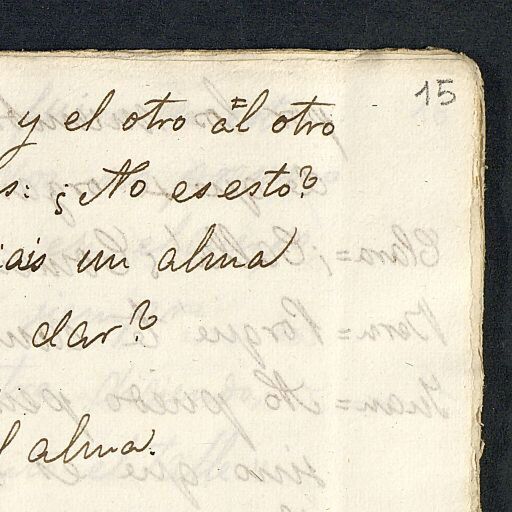 15
y el otro al otro
s: ¿No es esto?
iais un alma
dar?
l alma.